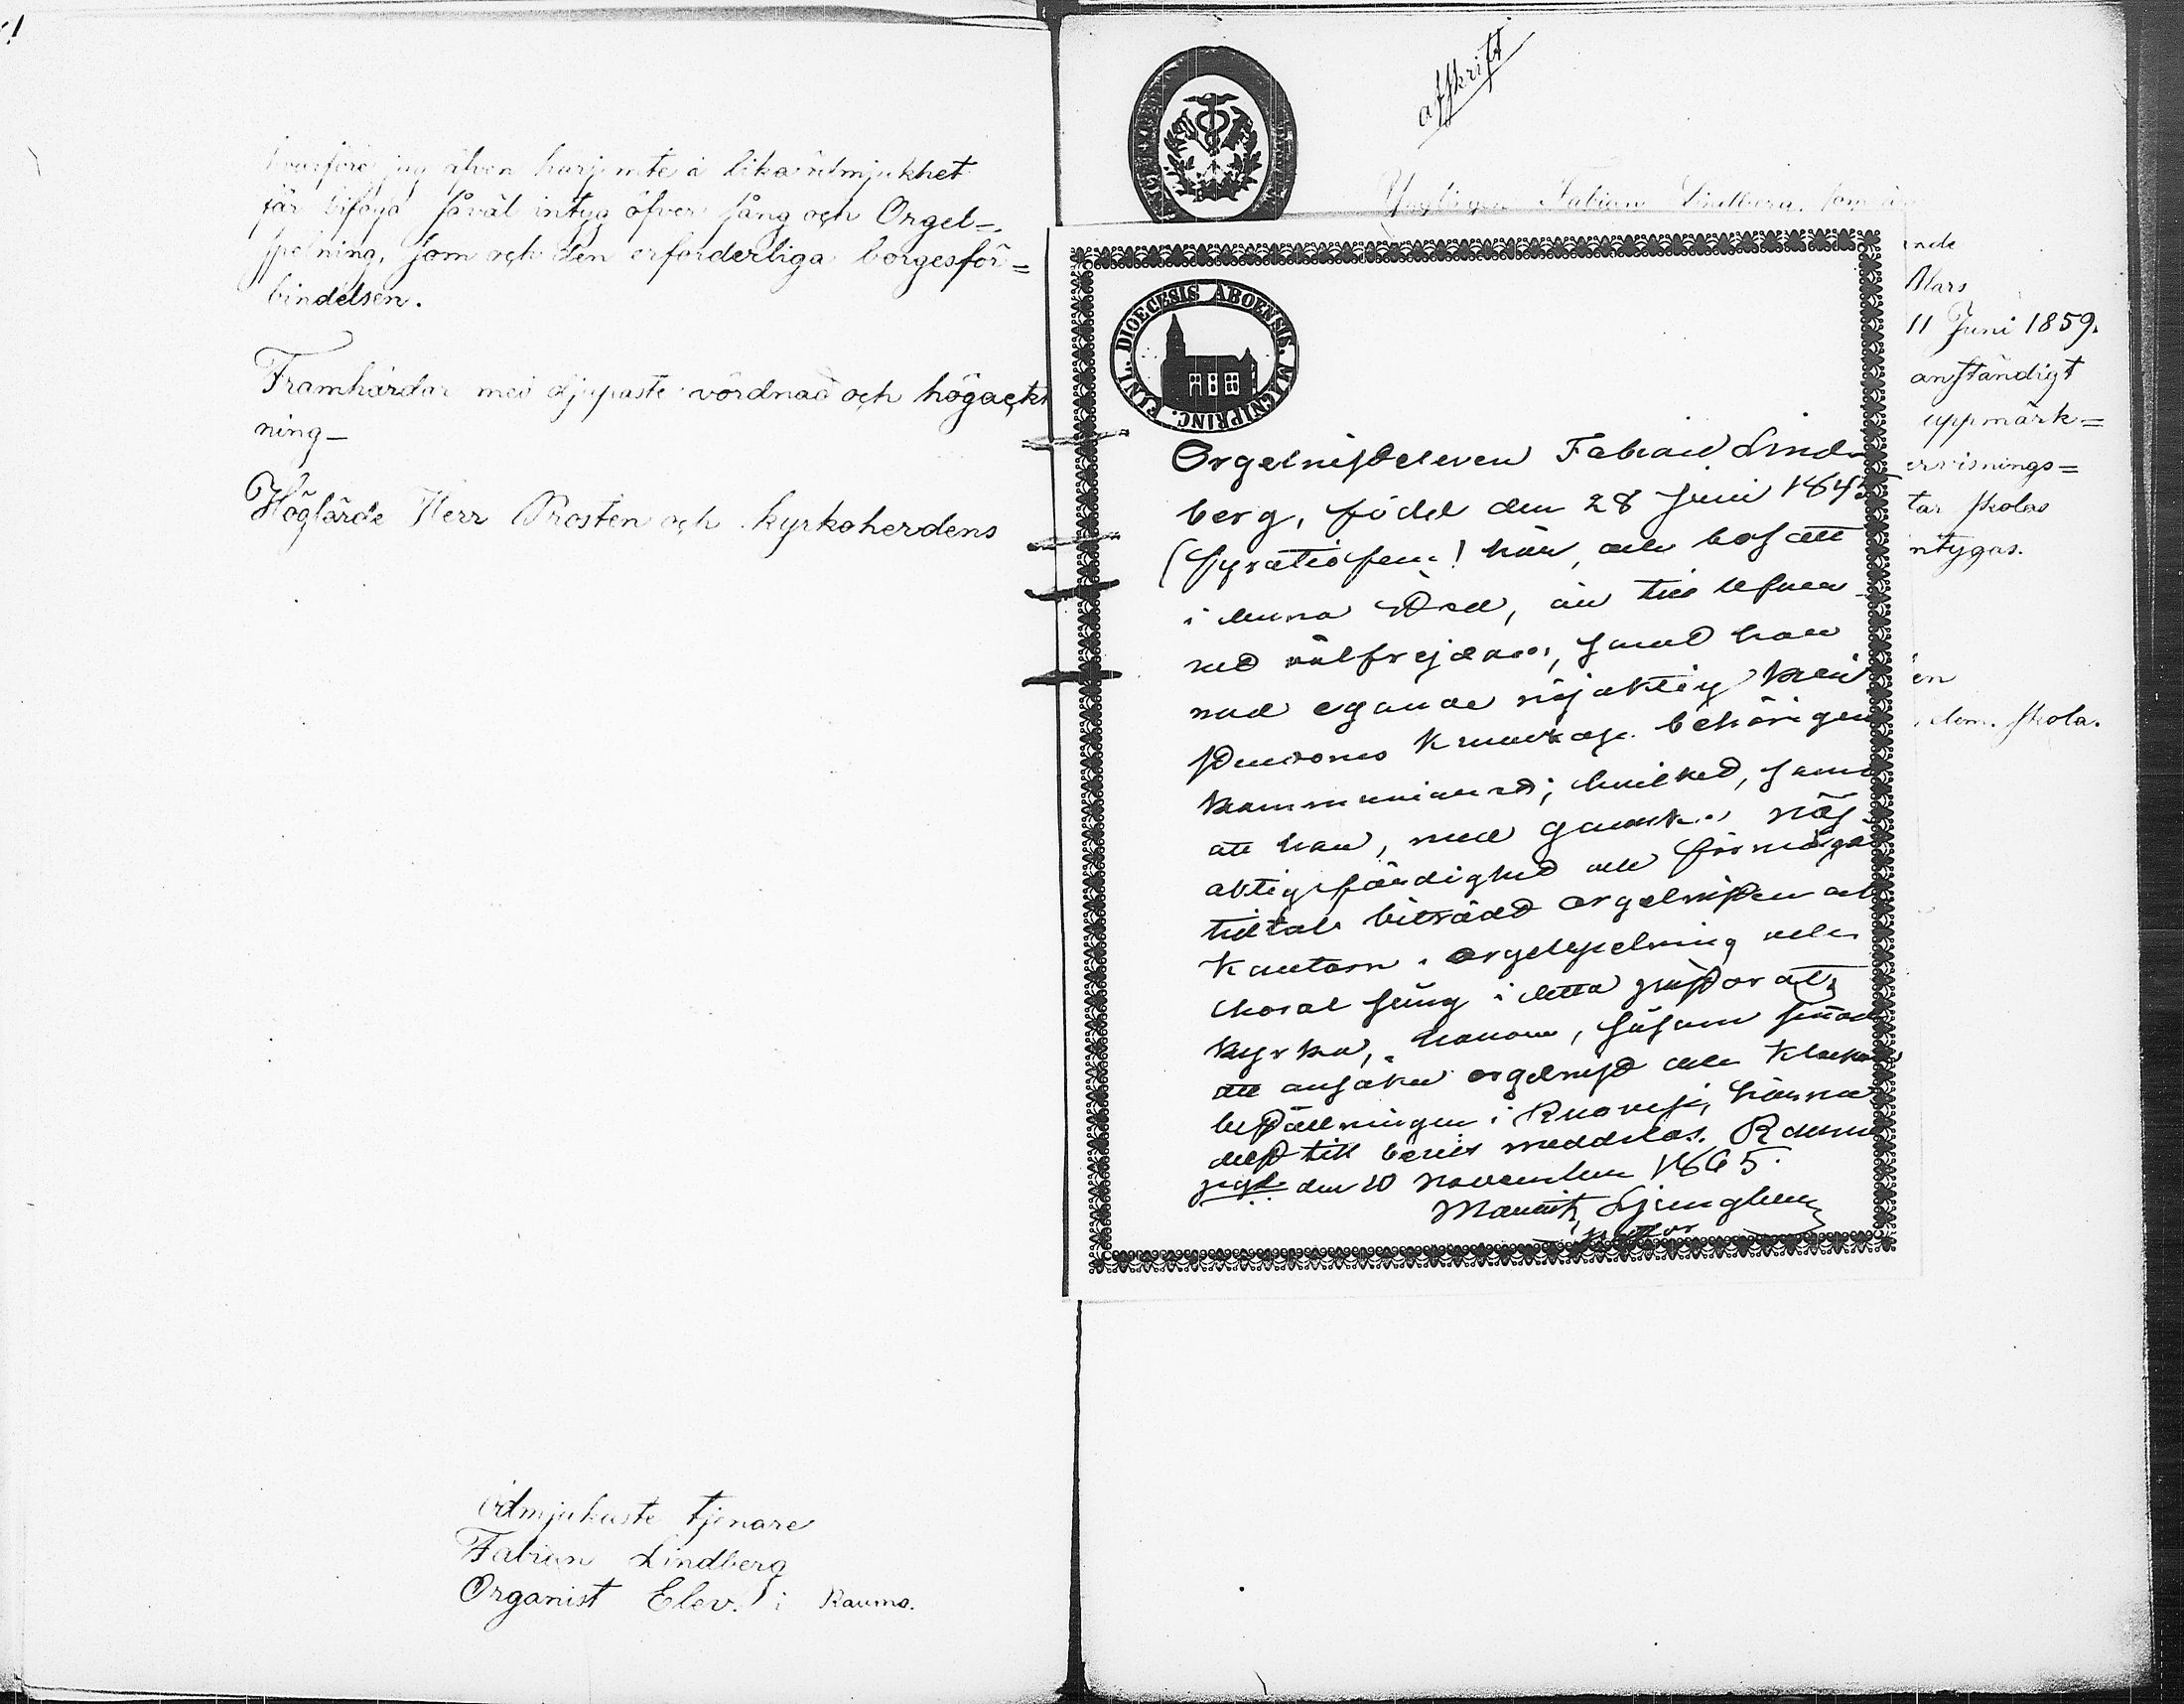 hvarföre jag även härjemte i lika ödmjukhet
får bifoga såväl intyg öfver sång och Orgel=
spelning, som och den erforderliga borgesför=
bindelsen.
Framhärdar med djupaste vördnad och högackt
ning_
Höglärde Herr Prosten och kyrkoherdens
ödmjukaste tjenare
Fabian Lindberg
Organist Elev. i Raumo.
afskrift
Ynglingen Fabian Lindberg, som är
nde
Mars
11 Juni 1859.
anständigt
uppmärk=
ervisnings=
tar skolas
ntygas.
en
elem. skola.
DIOECESIS ABOENSIS. M. PRINC. FINL.
Orgelnisteleven Fabian Lind-
berg, född den 28 Juni 1845
(fyratiofem) här, och bosatt
i denna Stad, är till lefver
ned välfrejdad, samt har
med egande nöjaktig
kunskap behörigen
kommunicerat; hvilket, samt
att han, med ganska nöj-
aktig färdighet och förmåga
tidtals biträdt orgelnisten och
Kantorn i orgelspelning och
choral sång i detta pastorats
kyrka, honom, såsom sinnad
att ansöka orgelnist och Klockare
beställningen i härme
delst till bevis meddelas. Raumo
den 10 November 1865.
Mauritz Ljungberg
Pastor